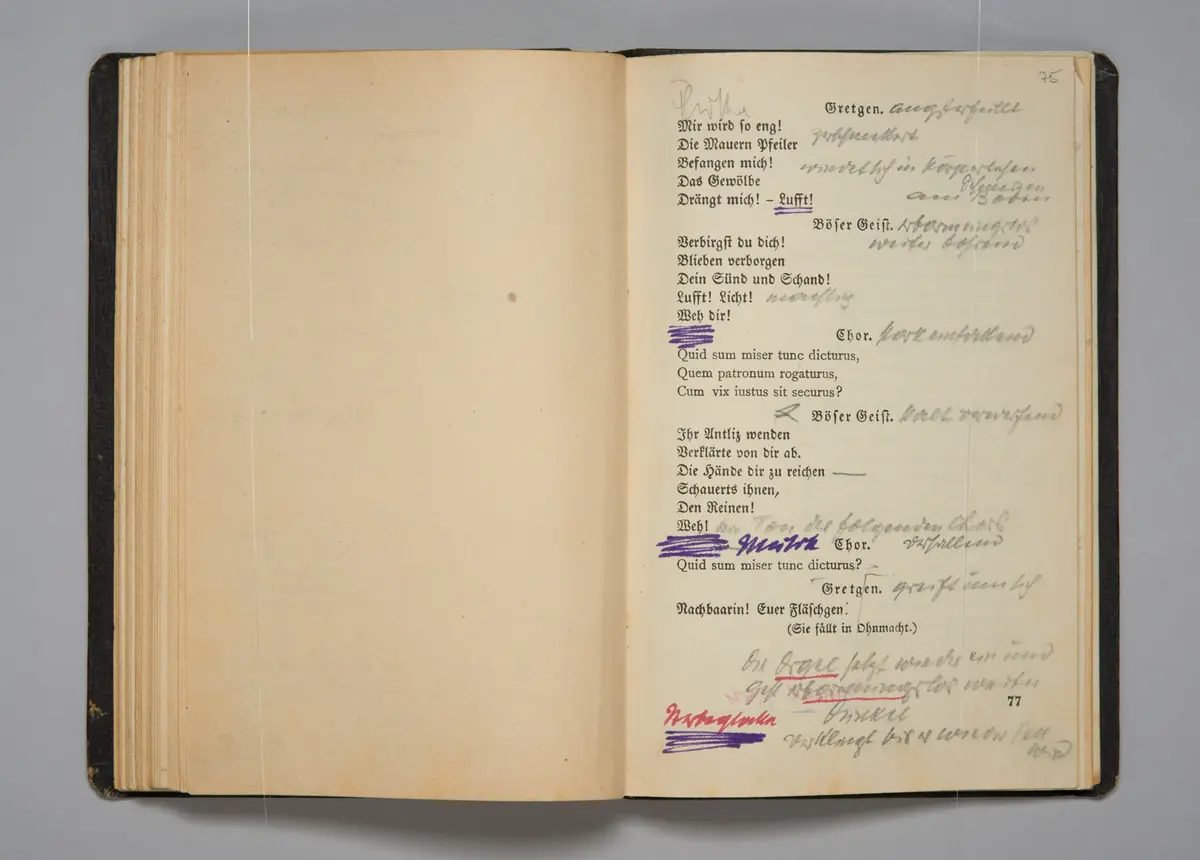 75
Gretgen. angsterfüllt
Mir wird so eng!
Die Mauern Pfeiler zerknittert
Befangen mich! windet sich in körperlichen
Das Gewölbe Schmerzen
Drängt mich! – Lufft! am Boden
Böser Geist. erbarmungslos
Verbirgst du dich! weiter bohrend
Blieben verborgen
Dein Sünd und Schand!
Lufft! Licht! mächtig
Weh dir!
Chor.
Quid sum miser tunc dicturus,
Quem patronum rogaturus,
Cum vix iustus sit securus?
Böser Geist. kalt verwerfend
Ihr Antliz wenden
Verklärte von dir ab.
Die Hände dir zu reichen —
Schauerts ihnen,
Den Reinen!
Weh! Ton des folgenden Chors
Musik Chor. verhallend
Quid sum miser tunc dicturus?
Gretgen. greift um sich
Nachbaarin! Euer Fläschgen!
(Sie fällt in Ohnmacht.)
Die Orgel setzt wieder ein und
geht erbarmungslos weiter
77
Sterbeglocke Dunkel
verklingt bis es wieder hell
wird